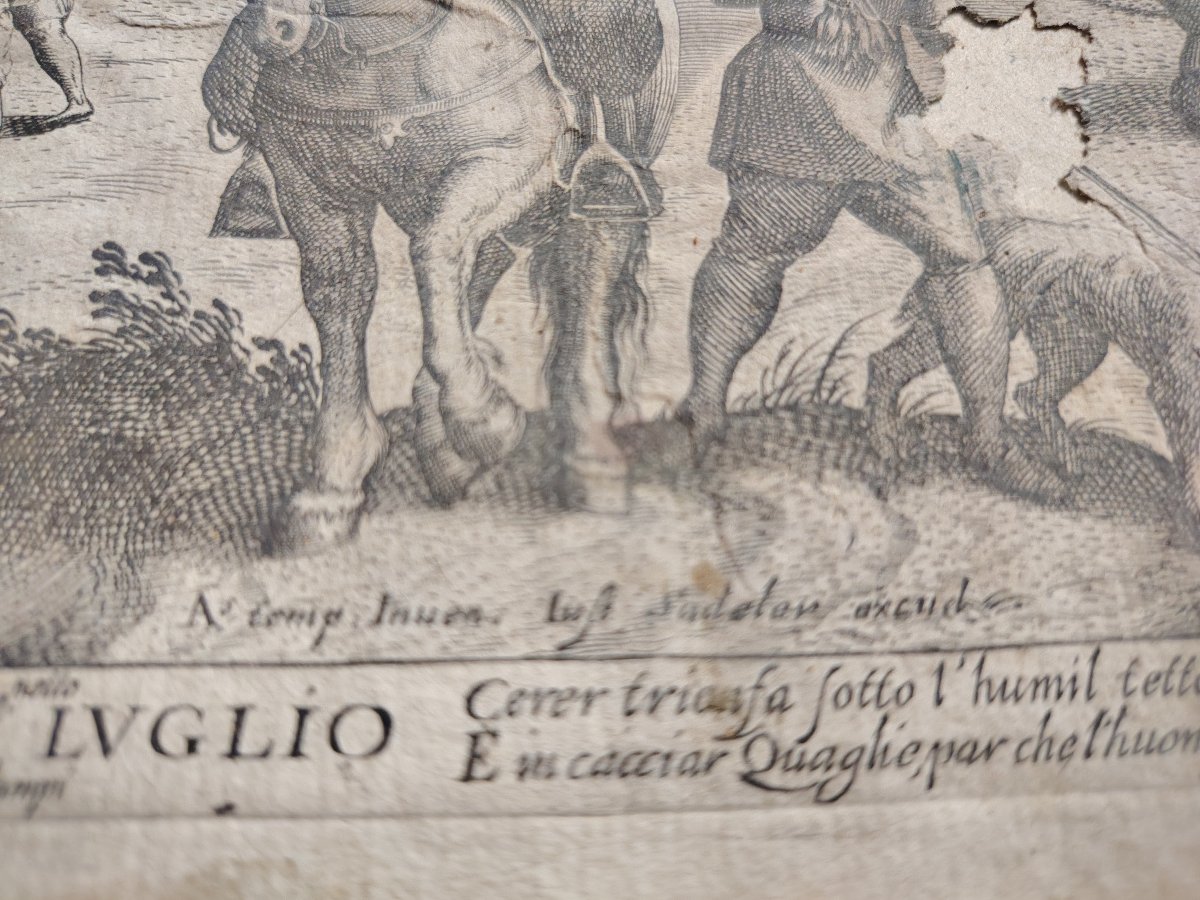 As temp. Inuen. Iust Sadeler excud.
nello
LVGLIO
Cerer trionfa sotto l'humil tetto
E in cacciar Quaglie, par che l'huom